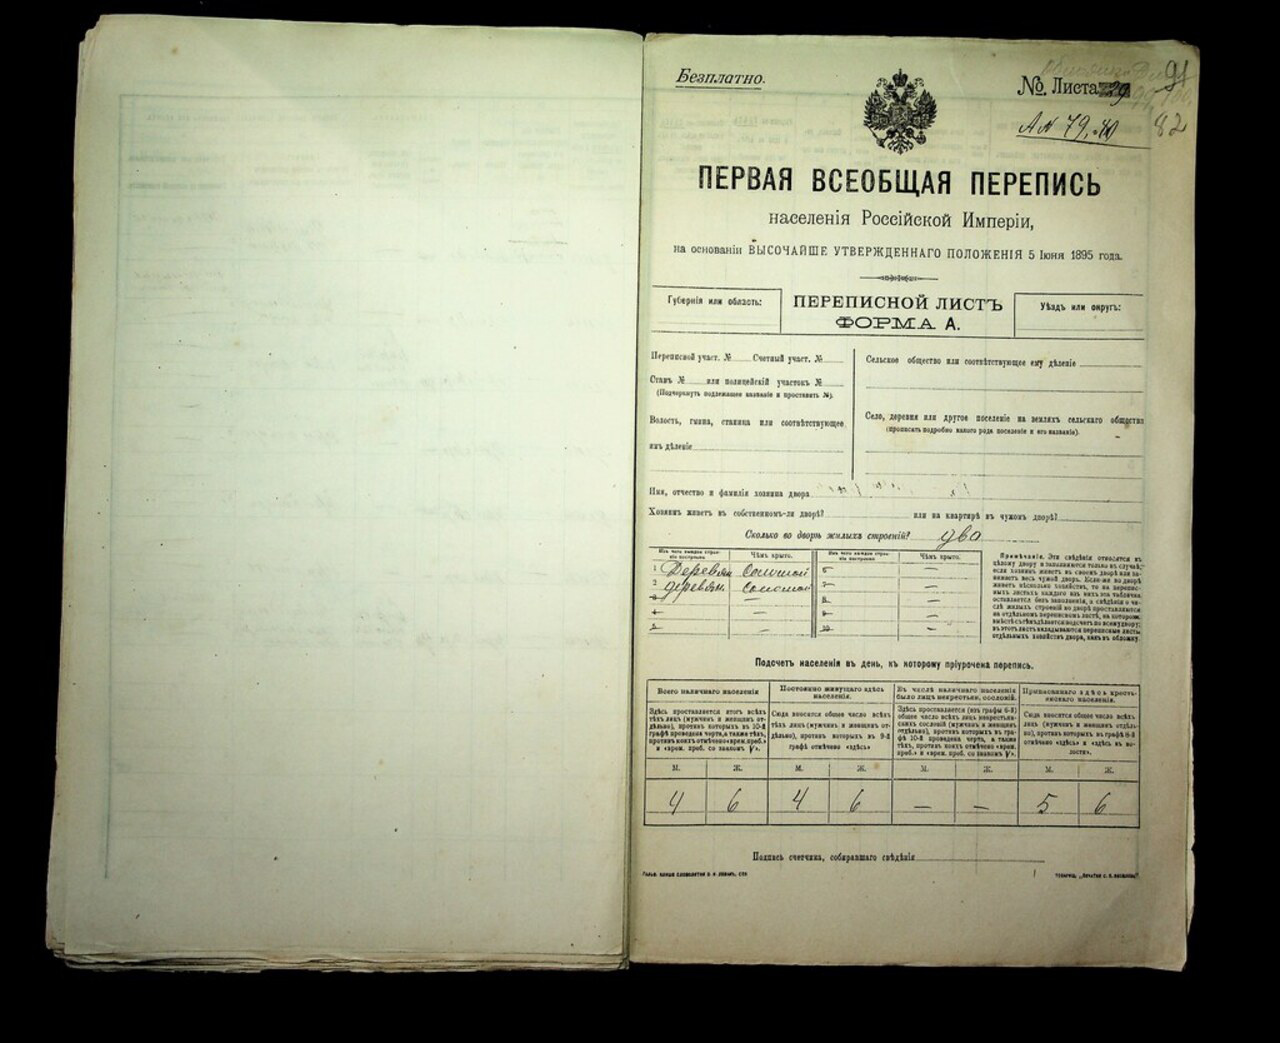 Безплатно.
№. Листа 39
91
82
А N 79, 80
ПЕРВАЯ ВСЕОБЩАЯ ПЕРЕПИСЬ
населенія Россійской Имперіи,
на основаніи ВЫСОЧАЙШЕ УТВЕРЖДЕННАГО ПОЛОЖЕНІЯ 5 Іюня 1895 года.
Губернія или область:
ПЕРЕПИСНОЙ ЛИСТЪ
ФОРМА А.
Уѣздъ или округъ:
Переписной участ. № Счетный участ. №
Станъ № или полицейскій участокъ №
(Подчеркнуть подлежащее названіе и проставить №).
Волость, гмина, станица или соотвѣтствующее
имъ дѣленіе
Сельское общество или соотвѣтствующее ему дѣленіе
Село, деревня или другое поселеніе на земляхъ сельскаго общества
(прописать подробно какого рода поселеніе и его названіе).
Имя, отчество и фамилія хозяина двора
Хозяинъ живетъ въ собственномъ-ли дворѣ? или на квартирѣ въ чужомъ дворѣ?
Сколько во дворѣ жилыхъ строеній? два
Изъ чего каждое строеніе построено. Чѣмъ крыто. Изъ чего каждое строеніе построено. Чѣмъ крыто.
1 Деревян Соломой 6 —
2 деревян. соломой 7 —
3 — 8 —
4 — 9 —
5 — 10 —
Примѣчаніе. Эти свѣдѣнія относятся къ
цѣлому двору и заполняются только въ случаѣ,
если хозяинъ живетъ въ своемъ дворѣ или за-
нимаетъ весь чужой дворъ. Если-же во дворѣ
живетъ нѣсколько хозяйствъ, то на перепис-
ныхъ листахъ каждаго изъ нихъ эта табличка
оставляется безъ заполненія, а свѣдѣнія о чи-
слѣ жилыхъ строеній во дворѣ проставляются
на отдѣльномъ переписномъ листѣ, на которомъ
вмѣстѣ съ тѣмъ дѣлается подсчетъ по всему двору;
въ этотъ листъ вкладываются переписные листы
отдѣльныхъ хозяйствъ двора, какъ въ обложку.
Подсчетъ населенія въ день, къ которому пріурочена перепись.
Всего наличнаго населенія
Здѣсь проставляется итогъ всѣхъ
тѣхъ лицъ (мужчинъ и женщинъ от-
дѣльно), противъ которыхъ въ 10-й
графѣ проведена черта, а также тѣхъ,
противъ коихъ отмѣчено «врем. проб.»
и «врем. проб. со знакомъ V».
Постоянно живущаго здѣсь
населенія.
Сюда вносится общее число всѣхъ
тѣхъ лицъ (мужчинъ и женщинъ от-
дѣльно), противъ которыхъ въ 9-й
графѣ отмѣчено «здѣсь»
Въ числѣ наличнаго населенія
было лицъ некрестьян. сословій.
Здѣсь проставляется (изъ графы 6-й)
общее число всѣхъ лицъ некрестьян-
скихъ сословій (мужчинъ и женщинъ
отдѣльно), противъ которыхъ въ гра-
фѣ 10-й проведена черта, а также
тѣхъ, противъ коихъ отмѣчено «врем.
проб.» и «врем. проб. со знакомъ V».
Приписаннаго здѣсь кресть-
янскаго населенія.
Сюда вносится общее число всѣхъ
лицъ (мужчинъ и женщинъ отдѣль-
но), противъ которыхъ въ графѣ 8-й
отмѣчено «здѣсь» и «здѣсь въ во-
лости».
М. Ж. М. Ж. М. Ж. М. Ж.
4 6 4 6 — — 5 6
Подпись счетчика, собиравшаго свѣдѣнія